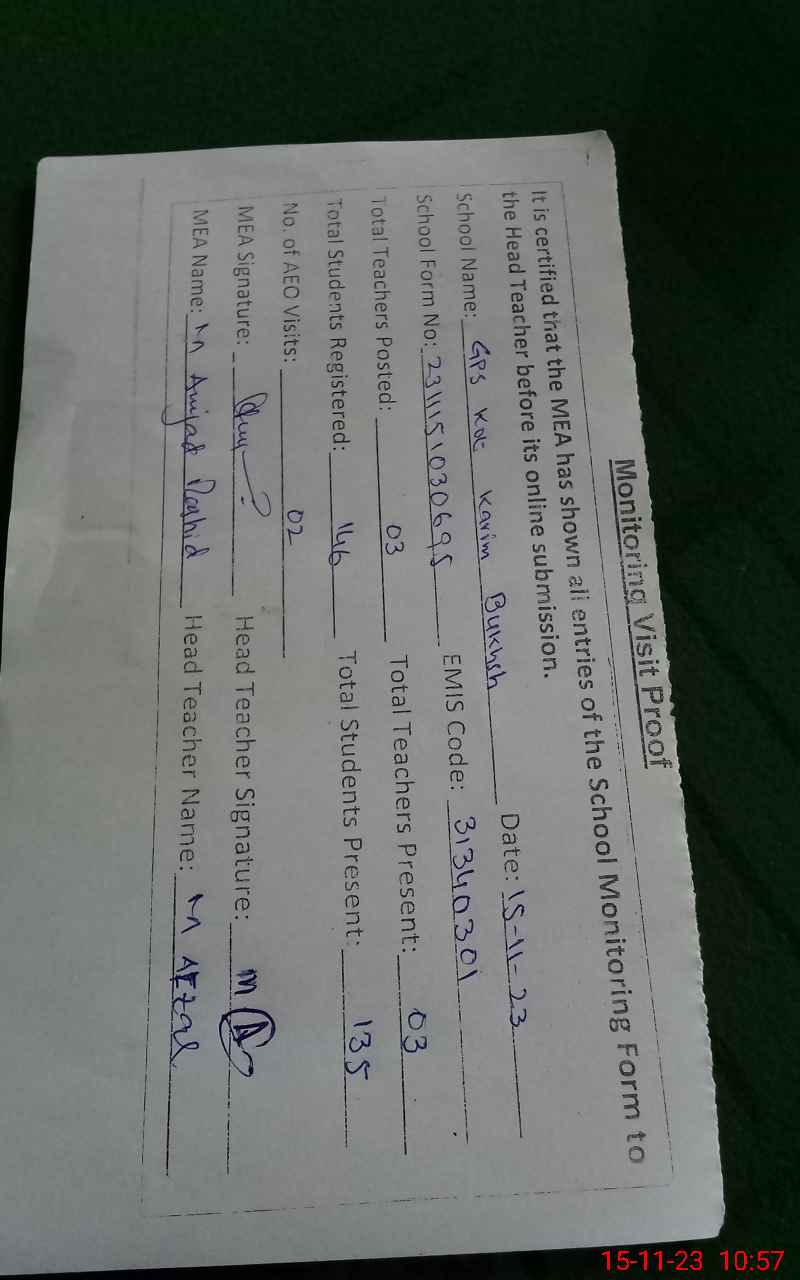 Monitoring Visit Proof
It is certified that the MEA has shown all entries of the School Monitoring Form to
the Head Teacher before its online submission.
School Name: GPS Kot Karim Bukhsh Date: 15-11-23
School Form No: 2311151030695 EMIS Code: 31340301
Total Teachers Posted: 03 Total Teachers Present: 03
Total Students Registered: 146 Total Students Present: 135
No. of AEO Visits: 02
MEA Signature: Head Teacher Signature: M A
MEA Name: M Amjad Rashid Head Teacher Name: M AFzal
15-11-23 10:57